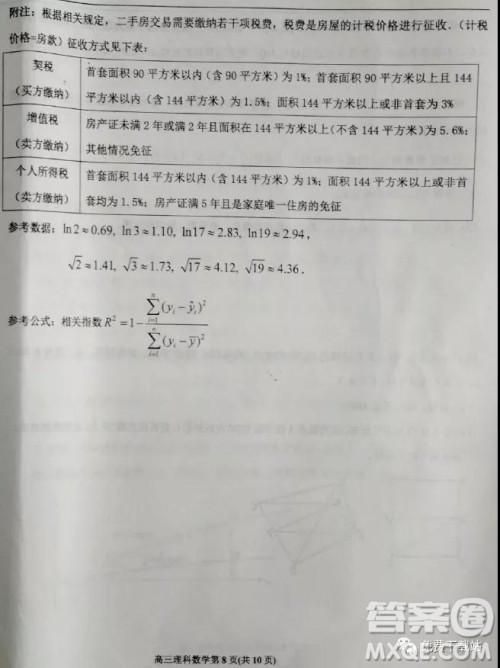 附注：根据相关规定，二手房交易需要缴纳若干项税费，税费是房屋的计税价格进行征收.（计税
价格=房款）征收方式见下表：
契税
（买方缴纳）
首套面积 90 平方米以内（含 90 平方米）为 1%；首套面积 90 平方米以上且 144
平方米以内（含 144 平方米）为 1.5%；面积 144 平方米以上或非首套为 3%
增值税
（卖方缴纳）
房产证未满 2 年或满 2 年且面积在 144 平方米以上（不含 144 平方米）为 5.6%；
其他情况免征
个人所得税
（卖方缴纳）
首套面积 144 平方米以内（含 144 平方米）为 1%；面积 144 平方米以上或非首
套均为 1.5%；房产证满 5 年且是家庭唯一住房的免征
参考数据：ln2≈0.69, ln3≈1.10, ln17≈2.83, ln19≈2.94，
√2≈1.41, √3≈1.73, √17≈4.12, √19≈4.36.
参考公式：相关指数 R² = 1 - ∑ᵢ₌₁ⁿ(yᵢ - ŷᵢ)² / ∑ᵢ₌₁ⁿ(yᵢ - ȳ)²
高三理科数学第 8 页(共 10 页)
答案圈
MXQE.COM